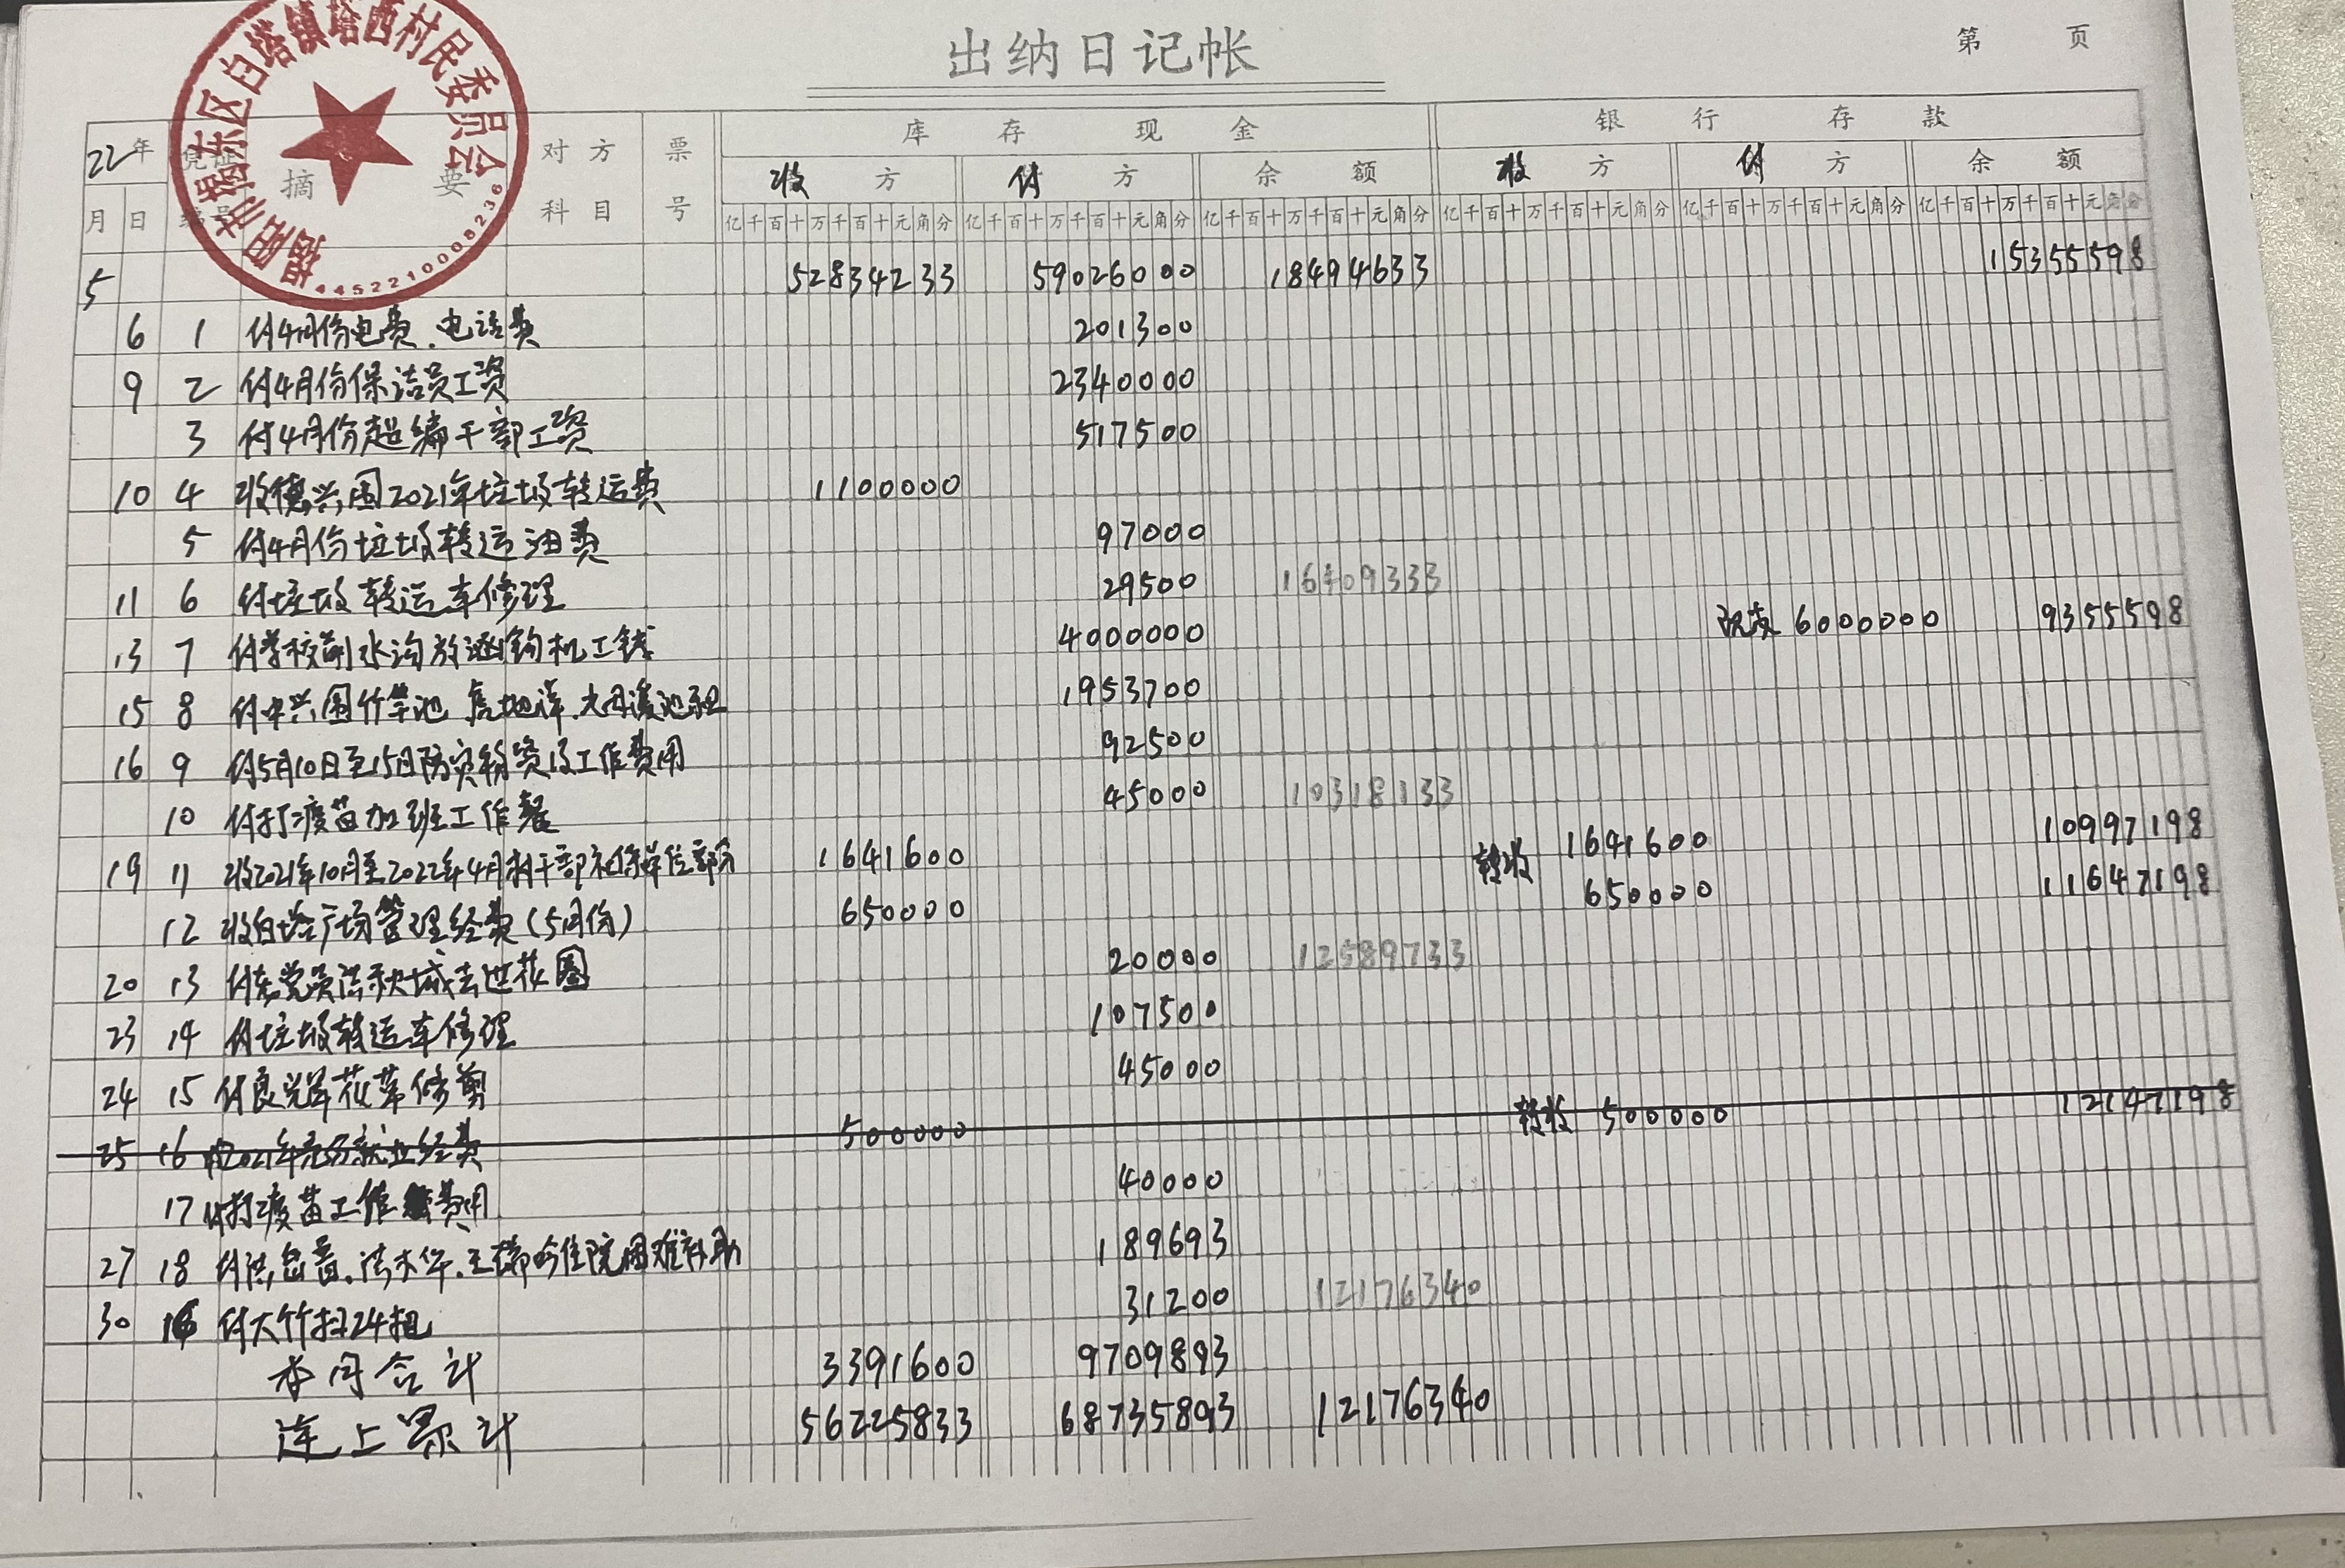 出纳日记帐
第 页
揭阳市揭东区白塔镇塔西村民委员会
4452210008236
22年 凭证 摘要 对方 票 库存现金 银行存款
收方 付方 余额 收方 付方 余额
月 日 编号 科目 号 亿千百十万千百十元角分 亿千百十万千百十元角分 亿千百十万千百十元角分 亿千百十万千百十元角分 亿千百十万千百十元角分 亿千百十万千百十元角分
5 52834233 59026000 18494633 15355598
6 1 付4月份电费、电话费 201300
9 2 付4月份保洁员工资 2340000
3 付4月份超编干部工资 517500
10 4 收德兴围2021年垃圾转运费 1100000
5 付4月份垃圾转运油费 97000
11 6 付垃圾转运车修理 29500 16409333
13 7 付学校前水沟放涵钩机工钱 4000000 现支 6000000 9355598
15 8 付中兴围竹竿池、 洋、 溪池租 1953700
16 9 付5月10日至15日防灾物资及工作费用 92500
10 付打疫苗加班工作餐 45000 10318133
19 11 收2021年10月至2022年4月村干部社保单位部分 1641600 转收 1641600 10997198
12 收白塔广场管理经费(5月份) 650000 650000 11647198
20 13 付老党员洪 城去世花圈 20000 12589733
23 14 付垃圾转运车修理 107500
24 15 付良光犀花草修剪 45000
25 16 收2021年充分就业经费 500000 转收 500000 12147198
17 付打疫苗工作费用 40000
27 18 付洪 、洪木华、王 吟住院困难补助 189693
30 16 付大竹扫24把 31200 12176340
本月合计 3391600 9709893
连上累计 56225833 68735893 12176340